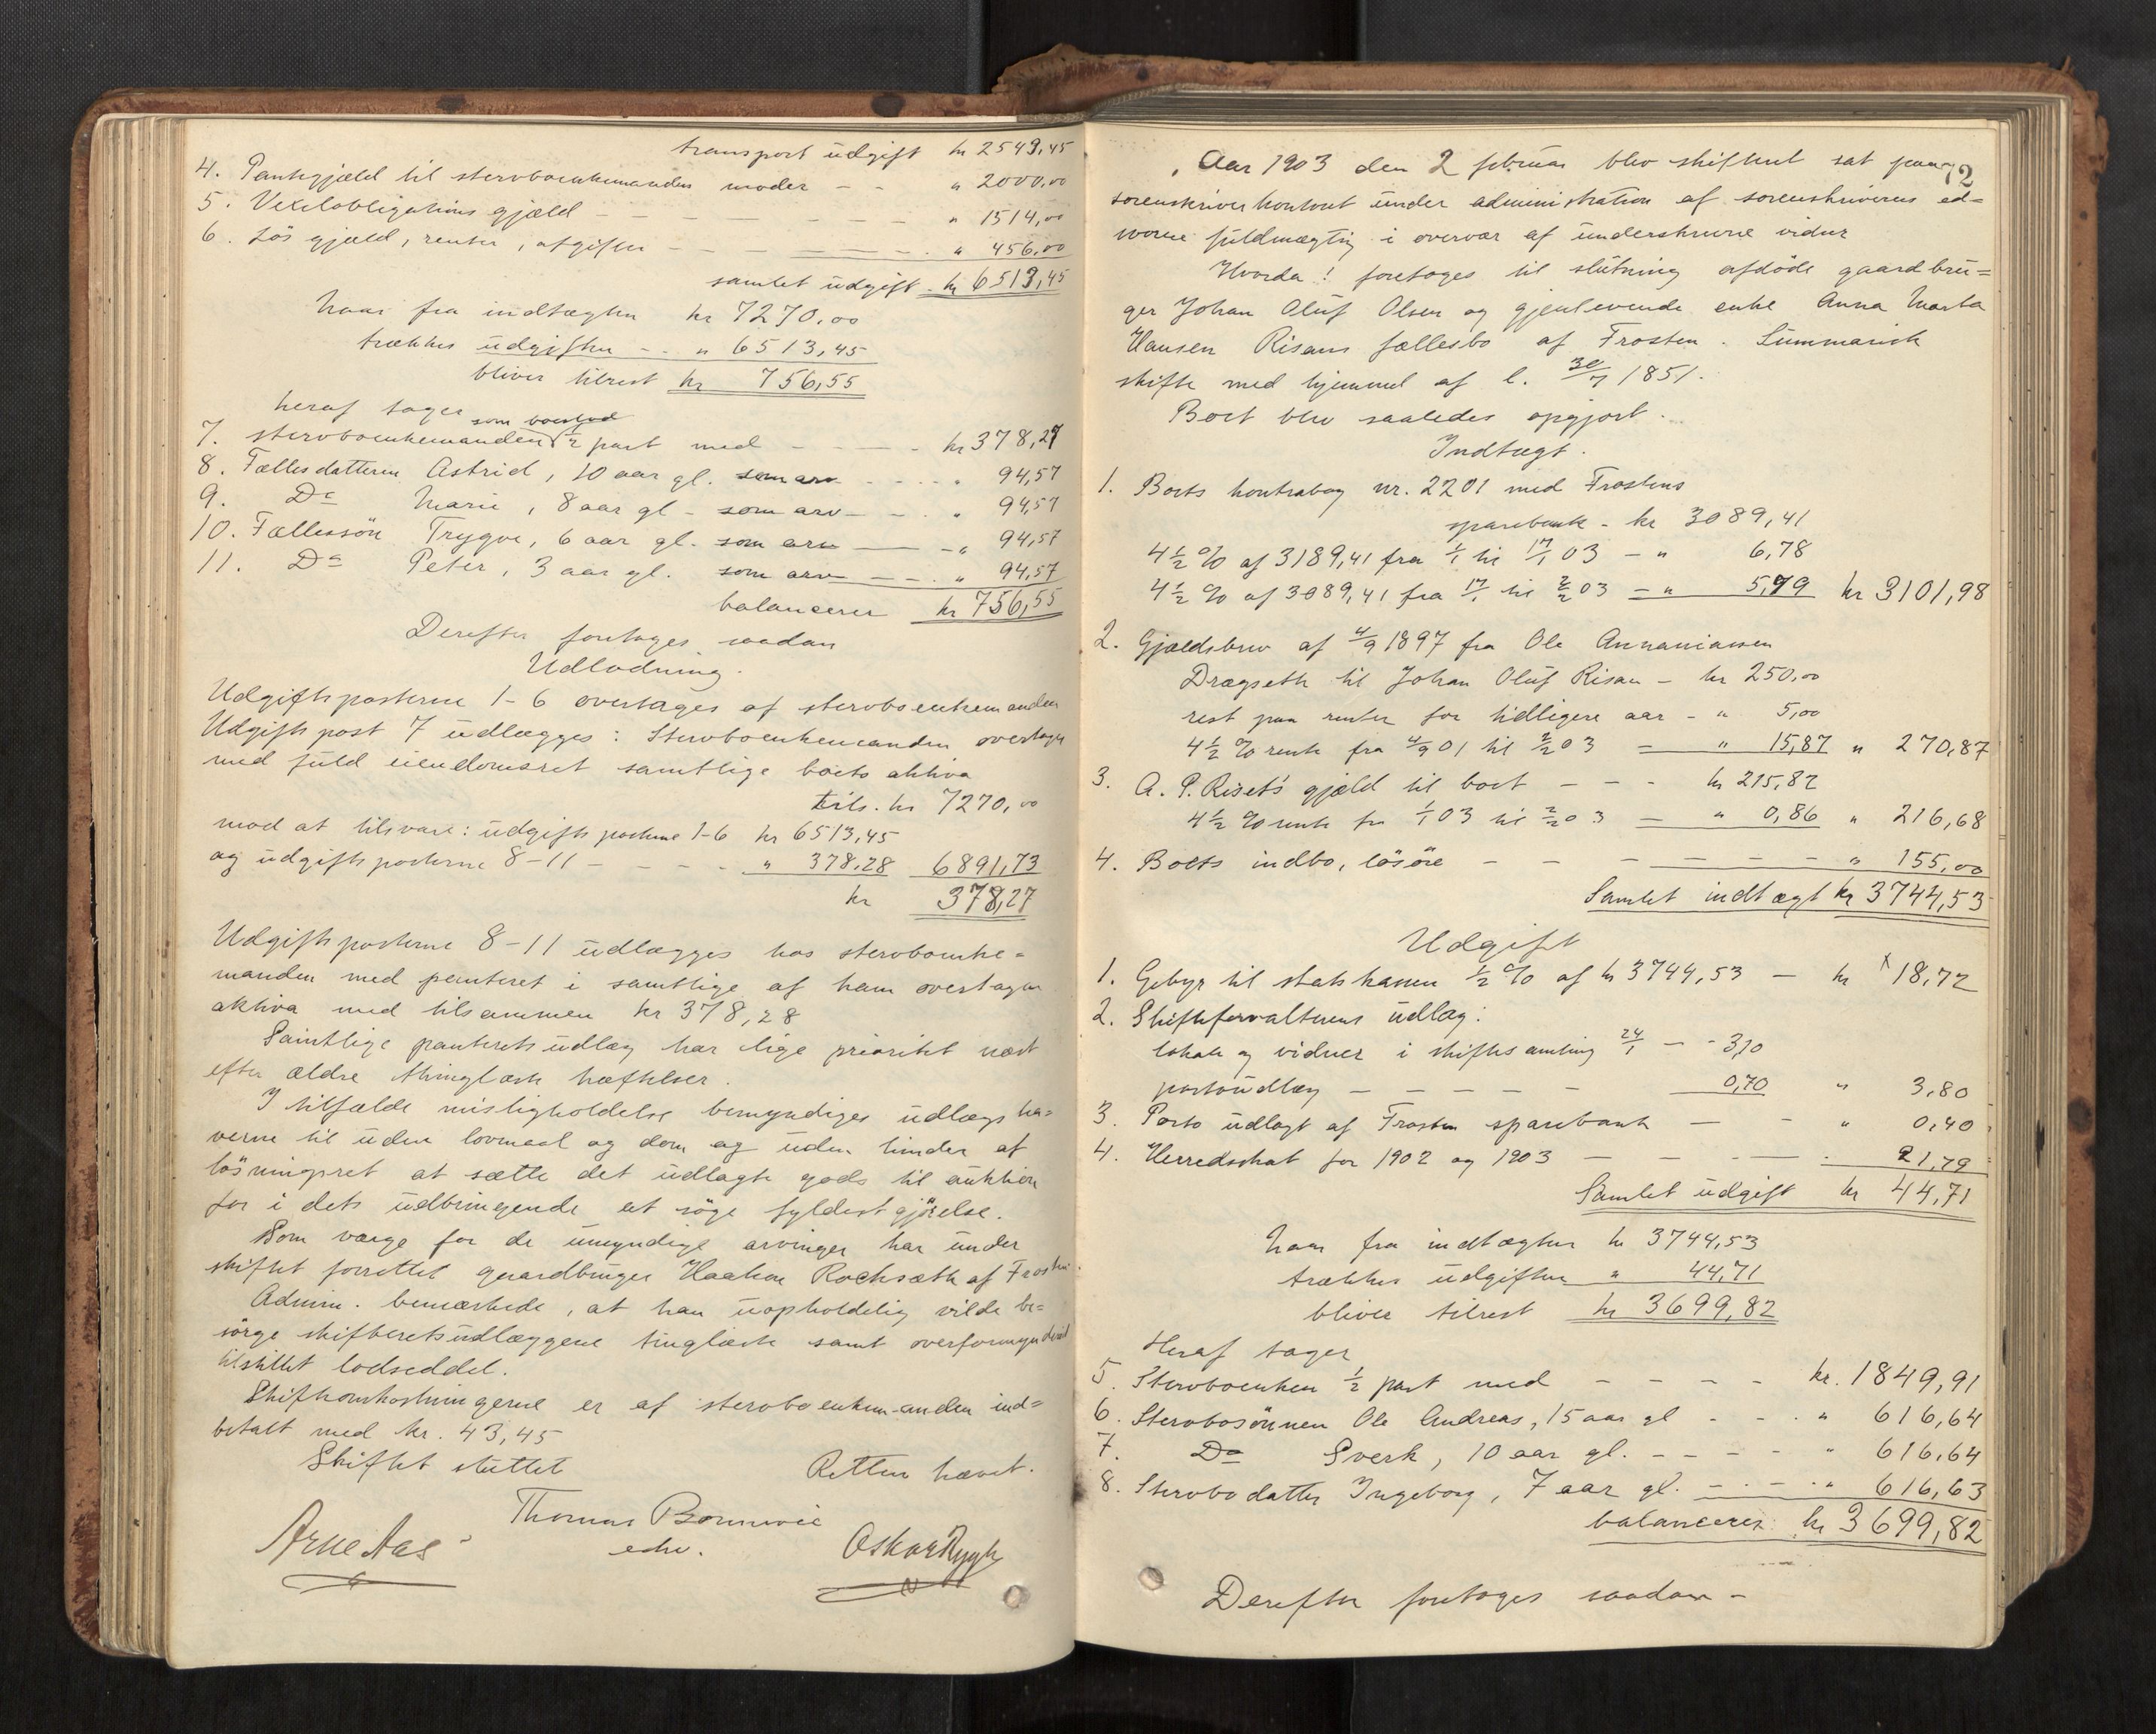 transport udgift kr 2543,45
4. Pantegjæld til sterboenkemandens moder - - " 2000,00
5. Vexelobligationsgjæld - - - " 1514,00
6. Lös gjæld, renter, afgifter - - - " 456,00
samlet udgift kr 6513,45
Naar fra indtægten kr 7270,00
trækkes udgiften - - " 6513,45
bliver tilrest kr 756,55
heraf tager
som boeslod
7. sterboenkemanden ½ part med - - - kr 378,27
8. Fællesdatteren Astrid, 10 aar gl. som arv - - - " 94,57
9. Do Marie, 8 aar gl - som arv - - " 94,57
10. Fællessön Trygve, 6 aar gl. som arv - - " 94,57
11. Do Peter, 3 aar gl. som arv - - " 94,57
balancerer kr 756,55
Derefter foretoges saadan
Udlodning.
Udgiftsposterne 1-6 overtages af sterboenkemanden
Udgiftspost 7 udlægges: Sterboenkemanden overtager
med fuld eiendomsret samtlige boets aktiva
tils. kr 7270,00
mod at tilsvare: udgiftsposterne 1-6 kr 6513,45
og udgiftsposterne 8-11 - - - " 378,28 6891,73
kr 378,27
Udgiftsposterne 8-11 udlægges hos sterboenke=
manden med panteret i samtlige af ham overtagne
aktiva med tilsammen kr 378,28
Samtlige panteretsudlæg har lige prioritet næst
efter ældre thinglæste hæftelser.
I tilfælde misligholdelse bemyndiges udlægsha=
verne til uden lovmaal og dom og uden hinder af
lösningsret at sætte det udlagte gods til auktion
for i dets udbringende at söge fyldestgjörelse.
Som værge for de umyndige arvinger har under
skiftet forrettet gaardbruger Haakon Rochsæth af Frosten.
Admin. bemærkede, at han uopholdelig vilde be=
sörge skifteretsudlæggene tinglæste samt overformynderiet
tilstillet lodseddel.
Skifteomkostningerne er af sterboenkemanden ind=
betalt med kr. 43,45
Skiftet sluttet Retten hævet.
Thomas Bonnevie
Arne Aas edsv. Oskar Rygh
72
Aar 1903 den 2 februar blev skifteret sat paa
sorenskriverkontoret under administration af sorenskriverens ed=
svorne fuldmægtig i overvær af underskrevne vidner
Hvorda! foretoges til slutning afdöde gaardbru=
ger Johan Oluf Olsen og gjenlevende enke Anna Marta
Hansen Risans fællesbo af Frosten. Summarisk
skifte med hjemmel af l. 30/7 1851.
Boet blev saaledes opgjort.
Indtægt.
1. Boets kontrabog nr. 2201 med Frostens
sparebank - kr 3089,41
4½ % af 3189,41 fra 1/1 til 17/1 03 - " 6,78
4½ % af 3089,41 fra 17/1 til 2/2 03 - " 5,79 kr 3101,98
2. Gjældsbrev af 4/9 1897 fra Ole Annaniassen
Dragseth til Johan Oluf Risan - kr 250,00
rest paa renter for tidligere aar - " 5,00
4½ % rente fra 4/9 01 til 2/2 03 - " 15,87 " 270,87
3. A. P. Risets gjæld til boet - - - kr 215,82
4½ % rente fra 1/1 03 til 2/2 03 - " 0,86 " 216,68
4. Boets indbo, lösöre - - - " 155,00
Samlet indtægt kr 3744,53
Udgift
1. Gebyr til statskassen ½ % af kr 3744,53 - kr x 18,72
2. Skifteforvalterens udlæg:
lokale og vidner i skiftesamling 24/1 - - 3,10
portoudlæg - - - 0,70 " 3,80
3. Porto udlagt af Frosten sparebank - - " 0,40
4. Herredsskat for 1902 og 1903 - - - 21,79
Samlet udgift kr 44,71
Naar fra indtægten kr 3744,53
trækkes udgiften " 44,71
bliver tilrest kr 3699,82
Heraf tager
5. Sterboenken ½ part med - - - kr. 1849,91
6. Sterbosönnen Ole Andreas, 15 aar gl - - " 616,64
7. Do Sverk, 10 aar gl. - - - " 616,64
8. Sterbodatter Ingeborg, 7 aar gl. - - - " 616,63
balancerer kr 3699,82
Derefter foretoges saadan -